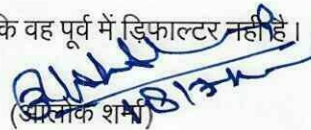 कि वह पूर्व में डिफाल्टर नहीं है।
(आलोक शर्मा)